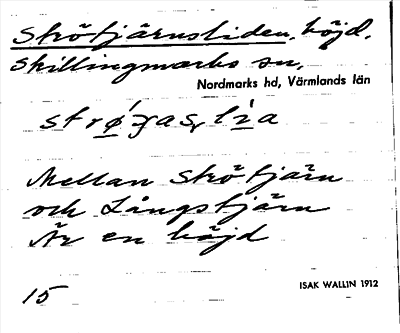 Strötjärnsliden, höjd.
Skillingmarks sn,
Nordmarks hd, Värmlands län
Mellan Strötjärn
och Långstjärn
Är en höjd
15
ISAK WALLIN 1912